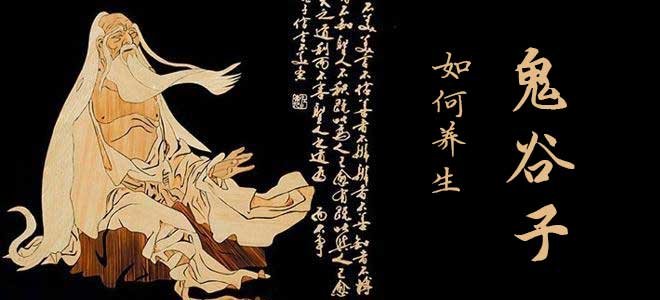 鬼谷子
如何养生
不美美言不信善者不辯辯者不善知者不博
者不知聖人不积既以為人己愈有既以與人己愈
之道利而不害聖人之道為而不争